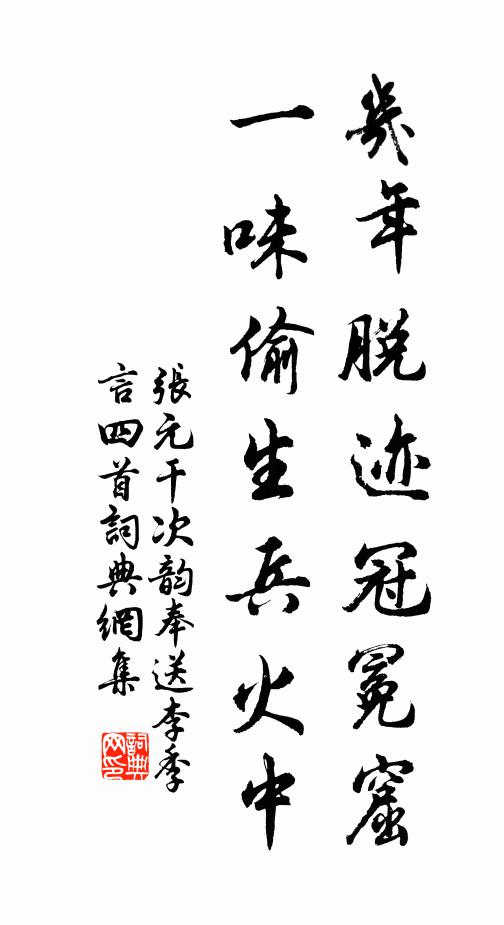 幾年脫迹冠冕窟
一味偷生兵火中
張元干次韵奉送李季
言四首詞典網集
詞典
网印